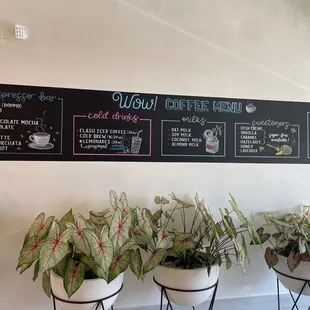 Wow! COFFEE MENU
espresso bar
(DOPPIO)
CHOCOLATE MOCHA
LATTE
cold drinks
FLASH ICED COFFEE
COLD BREW
LEMONADES
milks
OAT MILK
SOY MILK
COCONUT MILK
ALMOND MILK
sweeteners
IRISH CREAM
VANILLA
CARAMEL
HAZELNUT
HONEY
LAVENDER
sugar free
available